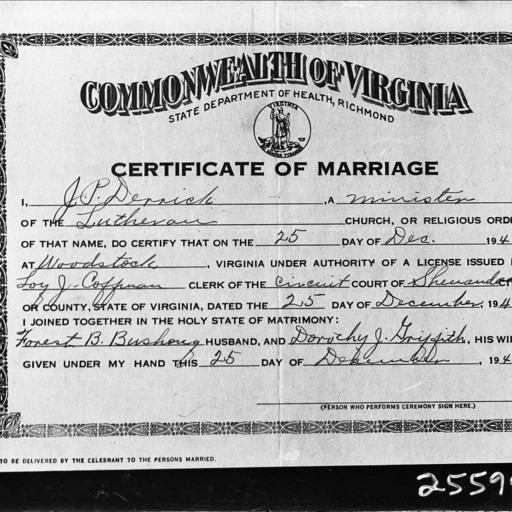 COMMONWEALTH OF VIRGINIA
STATE DEPARTMENT OF HEALTH, RICHMOND
VIRGINIA
CERTIFICATE OF MARRIAGE
I, J. P. Derrick , A minister
OF THE Lutheran CHURCH, OR RELIGIOUS ORDE
OF THAT NAME, DO CERTIFY THAT ON THE 25 DAY OF Dec. 194
AT Woodstock, VIRGINIA UNDER AUTHORITY OF A LICENSE ISSUED
Loy J. Coffman CLERK OF THE circuit COURT OF Shenandoa
OR COUNTY, STATE OF VIRGINIA, DATED THE 25 DAY OF December, 194
I JOINED TOGETHER IN THE HOLY STATE OF MATRIMONY:
Forest B. Bushong HUSBAND, AND Dorothy J. Griffith, HIS WI
GIVEN UNDER MY HAND THIS 25 DAY OF December , 194
(PERSON WHO PERFORMS CEREMONY SIGN HERE.)
TO BE DELIVERED BY THE CELEBRANT TO THE PERSONS MARRIED.
2559